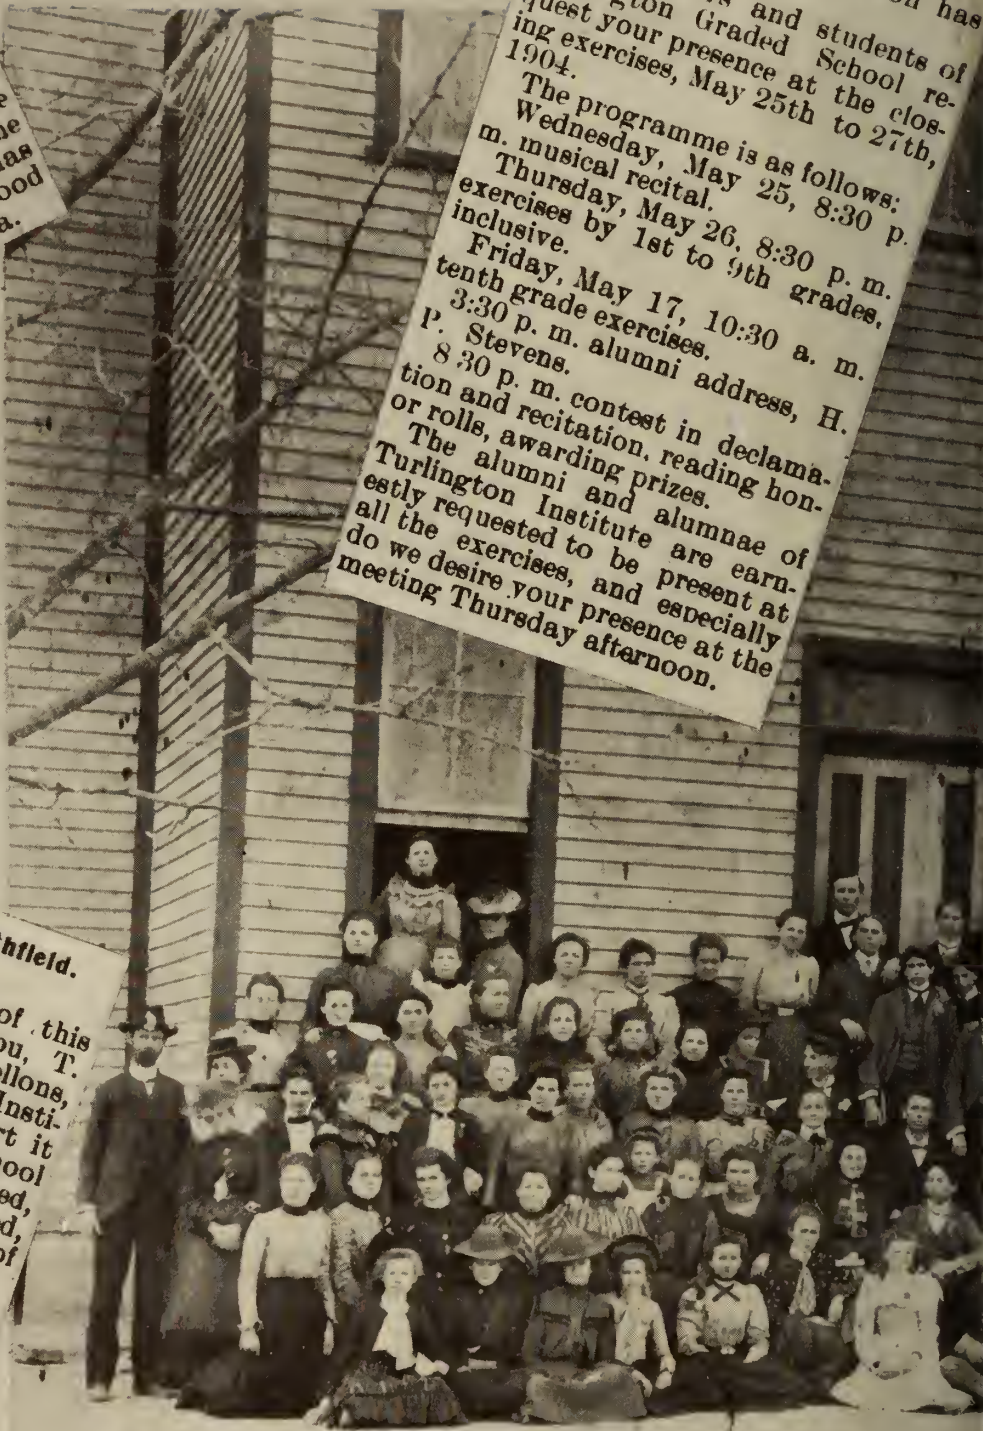 has
and students of
gton Graded School re-
quest your presence at the clos-
ing exercises, May 25th to 27th,
1904.
The programme is as follows:
Wednesday, May 25, 8:30 p.
m. musical recital.
Thursday, May 26, 8:30 p. m.
exercises by 1st to 9th grades,
inclusive.
Friday, May 17, 10:30 a. m.
tenth grade exercises.
3:30 p. m. alumni address, H.
P. Stevens.
8 30 p. m. contest in declama-
tion and recitation, reading hon-
or rolls, awarding prizes.
The alumni and alumnae of
Turlington Institute are earn-
estly requested to be present at
all the exercises, and especially
do we desire your presence at the
meeting Thursday afternoon.
e
ne
has
ood
a.
thfield.
of this
ou, T.
ollons,
Insti-
rt it
ool
ed,
d,
of